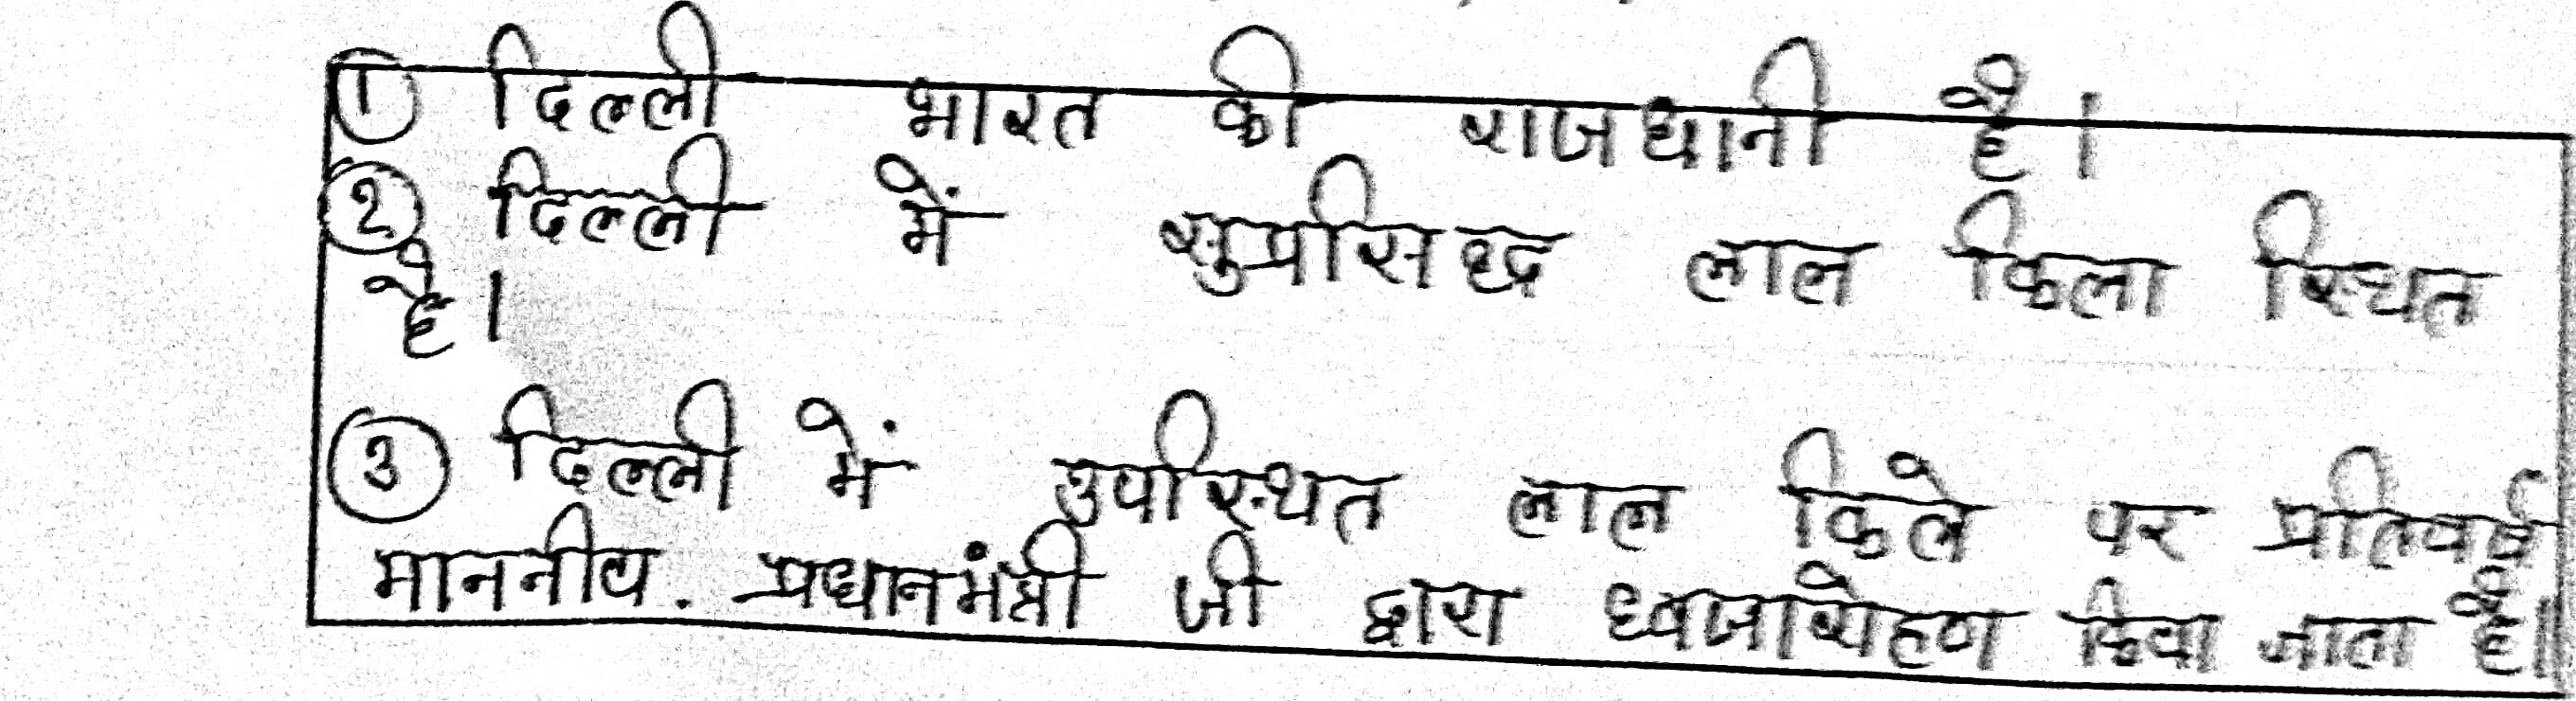 ① दिल्ली भारत की राजधानी है।
② दिल्ली में सुप्रसिद्ध लाल किला स्थित
है।
③ दिल्ली में उपस्थित लाल किले पर प्रतिवर्ष
माननीय. प्रधानमंत्री जी द्वारा ध्वजारोहण किया जाता है।